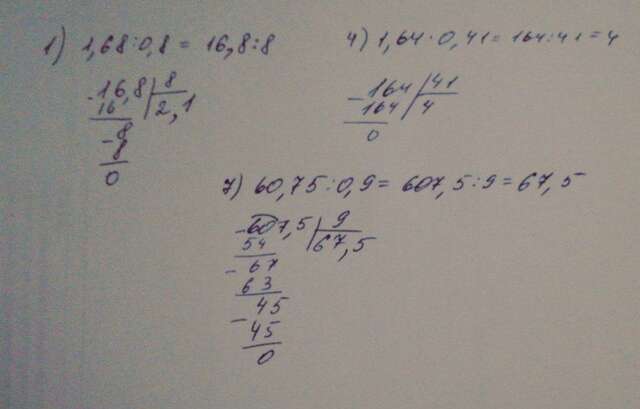 1) 1,68:0,8 = 16,8:8
-16,8 | 8
16 | 2,1
-8
8
0
4) 1,64:0,41 = 164:41 = 4
-164 | 41
164 | 4
0
7) 60,75:0,9 = 607,5:9 = 67,5
-607,5 | 9
54 | 67,5
- 67
63
- 45
45
0